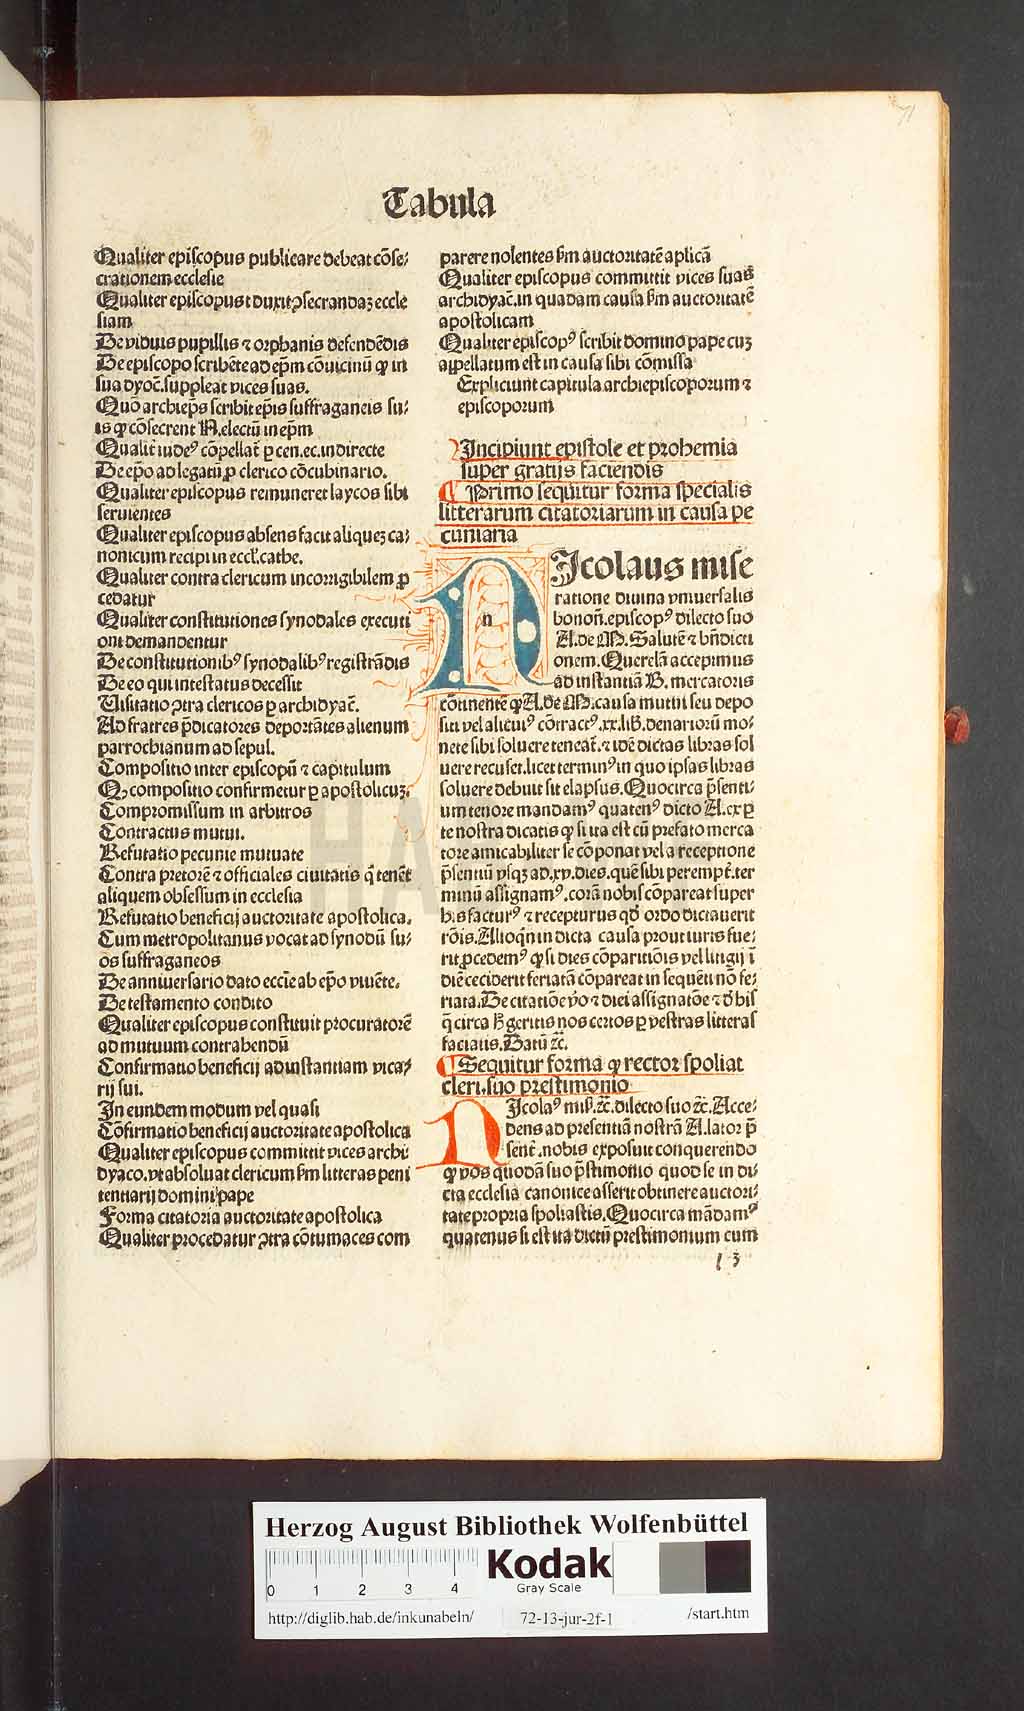 71
Tabula
Qualiter episcopus publicare debeat cõse⸗
crationem ecclesie
Qualiter episcopus t duxit ꝯsecrandaꝫ eccle
siam
De viduis pupillis ⁊ orphanis defendẽdis
De episcopo scribẽte ad ep̃m cõuicinũ ꝙ in
sua dyoc̃. suppleat vices suas.
Quõ archiep̃s scribit ep̃is suffraganeis su⸗
is ꝙ cõsecrent N. electũ in ep̃m
Qualit̃ iudeꝰ cõpellat̃ ꝑ cen. ec. indirecte
De ep̃o ad legatũ ꝓ clerico cõcubinario.
Qualiter episcopus remuneret laycos sibi
seruientes
Qualiter episcopus absens facit aliqueꝫ ca⸗
nonicum recipi in eccl̃. cathe.
Qualiter contra clericum incorrigibilem ꝓ
cedatur
Qualiter constitutiones synodales executi
oni demandentur
De constitutionibꝰ synodalibꝰ registrãdis
De eo qui intestatus decessit
Uisitatio ꝯtra clericos ꝑ archidyac̃.
Ad fratres p̃dicatores deportãtes alienum
parrochianum ad sepul.
Compositio inter episcopũ ⁊ capitulum
Qꝫ compositio confirmetur ꝑ apostolicuꝫ.
Compromissum in arbitros
Contractus mutui.
Refutatio pecunie mutuate
Contra pretorẽ ⁊ officiales ciuitatis q̃ tenẽt
aliquem obsessum in ecclesia
Refutatio beneficij auctoritate apostolica.
Cum metropolitanus vocat ad synodũ su⸗
os suffraganeos
De anniuersario dato eccĩe ab ep̃o viuẽte.
De testamento condito
Qualiter episcopus constituit procuratorẽ
ad mutuum contrahendũ
Confirmatio beneficij ad instantiam vica⸗
rij sui.
In eundem modum vel quasi
Cõfirmatio beneficij auctoritate apostolica
Qualiter episcopus committit vices archi
dyaco. vt absoluat clericum ẜm litteras peni
tentiarij domini pape
Forma citatoria auctoritate apostolica
Qualiter procedatur ꝯtra cõtumaces com
parere nolentes ẜm auctoritatẽ aplicã
Qualiter episcopus committit vices suas
archidyac̃. in quadam causa ẜm auctoritatẽ
apostolicam
Qualiter episcopꝰ scribit domino pape cuꝫ
appellatum est in causa sibi cõmissa
Expliciunt capitula archiepiscoporum ⁊
episcoporum
Incipiunt epistole et prohemia
super gratijs faciendis
¶ Primo sequitur forma specialis
litterarum citatoriarum in causa pe
cuniaria
NIcolaus mise
ratione diuina vniuersalis
bonoñ. episcopꝰ dilecto suo
A. de M. Salutẽ ⁊ bñdicti
onem. Querelã accepimus
ad instantiã B. mercatoris
cõtinentẽ ꝙ A. de M. causa mutui seu depo
siti vel alicuiꝰ cõtractꝰ. xx. lib. denariorũ mo⸗
nete sibi soluere teneat̃. ⁊ idẽ dictas libras sol
uere recuset. licet terminꝰ in quo ipsas libras
soluere debuit sit elapsus. Quocirca p̃senti⸗
um tenore mandamꝰ quatenꝰ dicto A. ex ꝑ
te nostra dicatis ꝙ si ita est cũ prefato merca
tore amicabiliter se cõponat vel a receptione
p̃sentiũ vsqꝫ ad. xv. dies. quẽ sibi perempt̃. ter
minũ assignamꝰ. corã nobis cõpareat super
his facturꝰ ⁊ recepturus qd̃ ordo dictauerit
rõis. Alioqñ in dicta causa prout iuris fue⸗
rit ꝓcedemꝰ ꝙ si dies cõparitiõis vel litigij ĩ
diẽ ceciderit feriatã cõpareat in sequẽti nõ fe⸗
riata. De citatiõe ṽo ⁊ diei assignatõe ⁊ d̃ his
q̃ circa h̃ geritis nos certos ꝑ vestras litteras
faciatis. Datũ ⁊c̃.
¶ Sequitur forma ꝙ rector spoliat
cleri. suo prestimonio
NIcolaꝰ mis̃. ⁊c̃. dilecto suo ⁊c̃. Acce⸗
dens ad presentiã nostrã A. lator p̃
sent̃. nobis exposuit conquerendo
ꝙ vos quodã suo p̃stimonio quod se in di⸗
cta ecclesia canonice asserit obtinere auctori⸗
tate propria spoliastis. Quocirca mãdamꝰ
quatenus si est ita dictũ prestimonium cum
l 3
HAB
Herzog August Bibliothek Wolfenbüttel
0 1 2 3 4
Kodak
Gray Scale
http://diglib.hab.de/inkunabeln/ 72-13-jur-2f-1 /start.htm